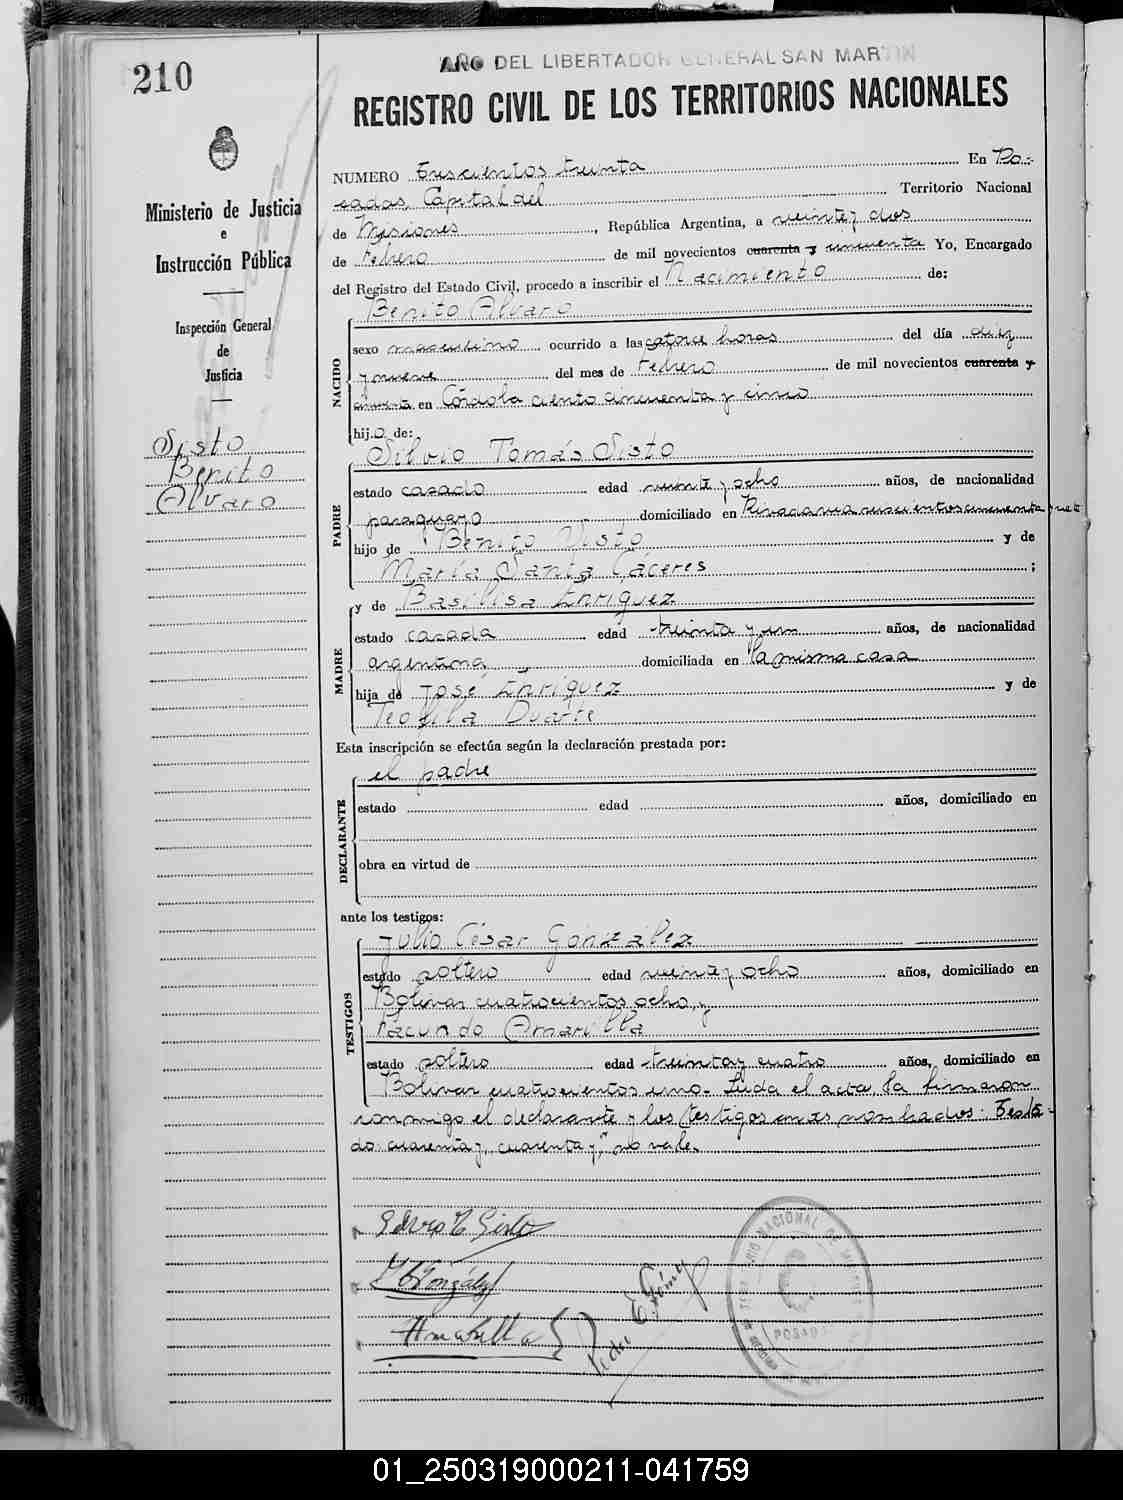 210
AÑO DEL LIBERTADOR GENERAL SAN MARTIN
REGISTRO CIVIL DE LOS TERRITORIOS NACIONALES
Ministerio de Justicia
e
Instrucción Pública
Inspección General
de
Justicia
Sisto
Benito
Alvaro
NUMERO trescientos treinta En Po-
sadas, Capital del Territorio Nacional
de Misiones, República Argentina, a veinte y dos
de febrero de mil novecientos cuarenta y cincuenta Yo, Encargado
del Registro del Estado Civil, procedo a inscribir el Nacimiento de:
NACIDO
Benito Alvaro
sexo masculino ocurrido a las catorce horas del día diez
y nueve del mes de febrero de mil novecientos cuarenta y
en Córdoba ciento cincuenta y cinco
hijo de:
PADRE
Silvio Tomás Sisto
estado casado edad veinte y ocho años, de nacionalidad
paraguayo domiciliado en Rivadavia
hijo de Benito Sisto y de
María Santa Cáceres ;
MADRE
y de Basilisa Enriquez
estado casada edad treinta y un años, de nacionalidad
argentina domiciliada en la misma casa
hija de José Enriquez y de
Teofila Duarte
Esta inscripción se efectúa según la declaración prestada por:
DECLARANTE
el padre
estado edad años, domiciliado en
obra en virtud de
ante los testigos:
TESTIGOS
Julio César González
estado soltero edad veinte y ocho años, domiciliado en
Bolivar cuatrocientos ocho, y
Facundo Amarilla
estado soltero edad treinta y cuatro años, domiciliado en
Bolivar cuatrocientos uno. Leida el acta, la firmaron
conmigo el declarante y los testigos antes nombrados. Testa-
do: cuarenta y, cuarenta y," no vale.
González
Amarilla
Pedro E. Gómez
NACIONAL DE MISIONES
POSADAS
01_250319000211-041759